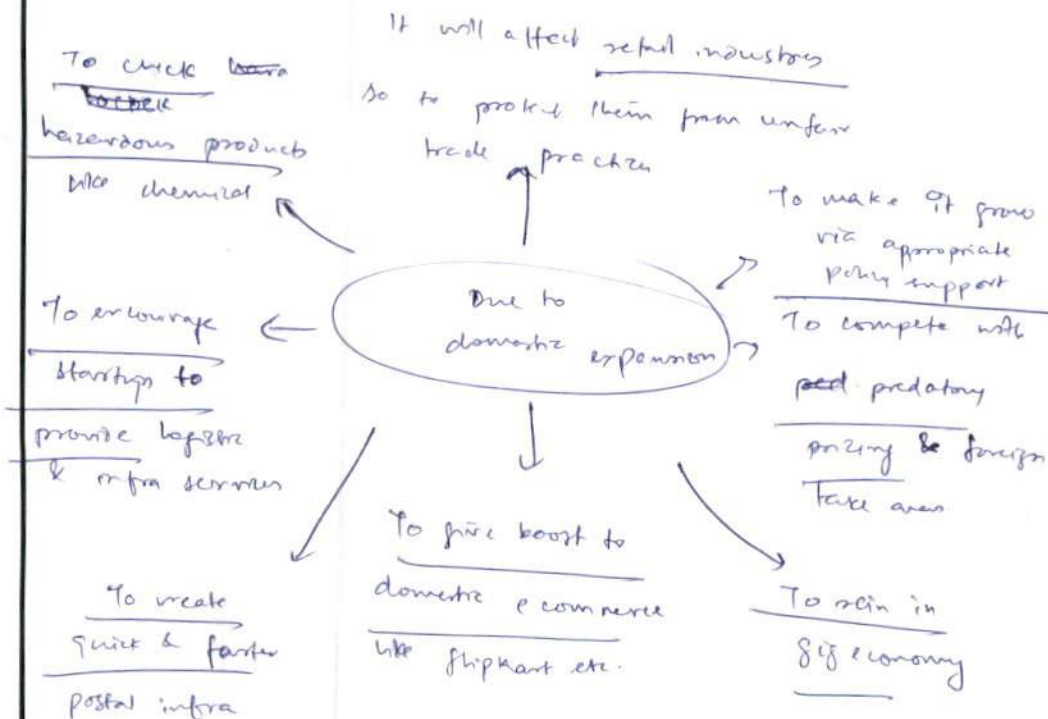 It will affect retail industries
so to protect them from unfair
trade practices
To check
hazardous products
like chemical
To make it grow
via appropriate
policy support
To compete with
predatory
pricing & foreign
take overs
Due to
domestic expansion
To encourage
startups to
provide logistic
& infra services
To give boost to
domestic e commerce
like flipkart etc.
To create
quick & faster
postal infra
To rein in
gig economy